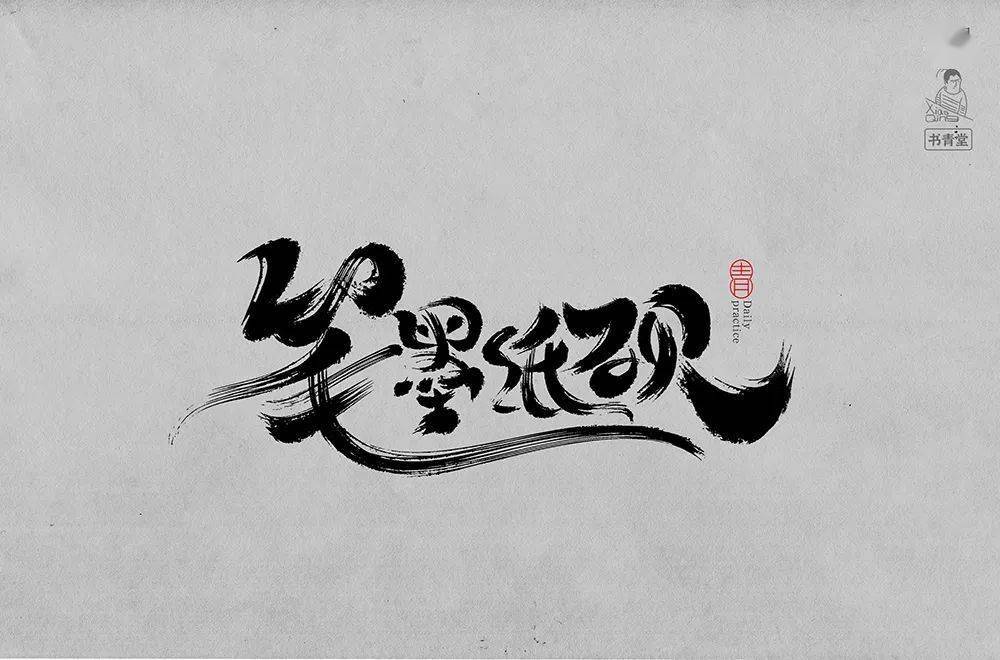 笔墨纸砚
青
Daily
practice
Qing
书青堂